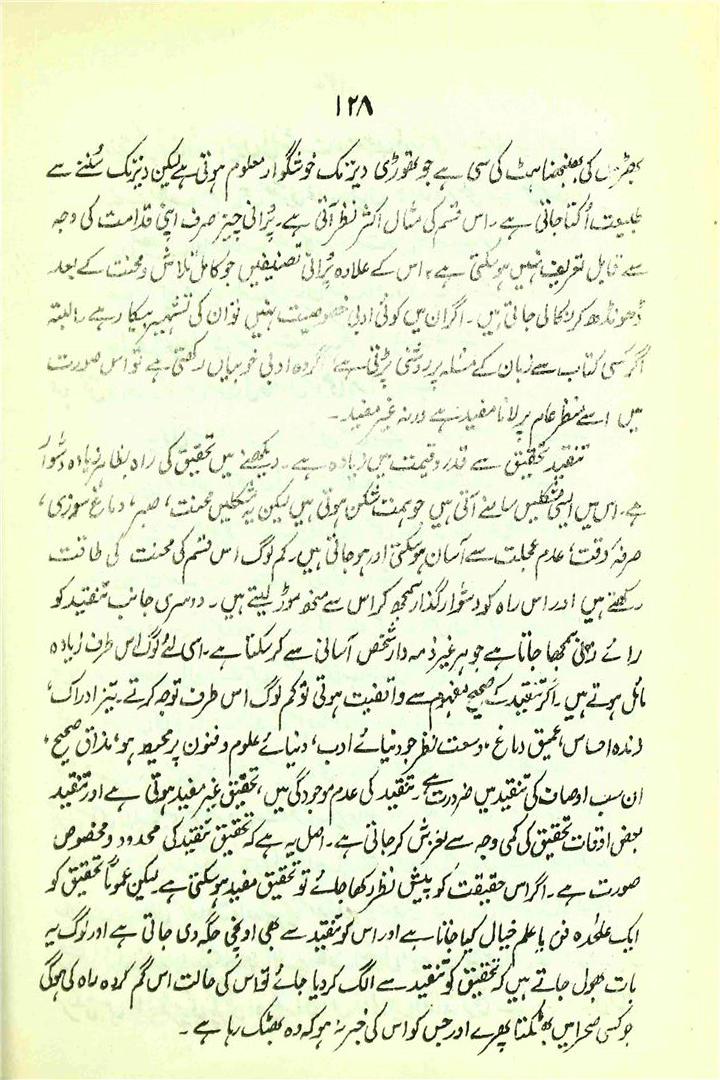 ۱۲۸
بھڑوں کی بھنبھناہٹ کی سی ہے جو تھوڑی دیر تک خوشگوار معلوم ہوتی ہے لیکن دیر تک سننے سے
طبیعت اُکتا جاتی ہے۔ اس قسم کی مثال اکثر نظر آتی ہے۔ پرانی چیز صرف اپنی قدامت کی وجہ
سے قابل تعریف نہیں ہو سکتی ہے، اس کے علاوہ پرانی تصنیفیں جو کامل تلاش و محنت کے بعد
ڈھونڈھ کر نکالی جاتی ہیں۔ اگر ان میں کوئی ادبی خصوصیت نہیں تو ان کی تشہیر بیکار ہے۔ البتہ
اگر کسی کتاب سے زبان کے مسئلہ پر روشنی پڑتی ہے، اگر وہ ادبی خوبیاں رکھتی ہے تو اس صورت
میں اسے منظرِ عام پر لانا مفید ہے ورنہ غیر مفید۔
تنقید تحقیق سے قدر و قیمت میں زیادہ ہے۔ دیکھنے میں تحقیق کی راہ بظاہر زیادہ دشوار
ہے۔ اس میں ایسی شکلیں سامنے آتی ہیں جو ہمت شکن ہوتی ہیں لیکن یہ شکلیں محنت، صبر، دماغ سوزی،
صرفۂ وقت، عدم عجلت سے آسان ہو سکتی اور ہو جاتی ہیں۔ کم لوگ اس قسم کی محنت کی طاقت
رکھتے ہیں اور اس راہ کو دشوار گذار سمجھ کر اس سے منھ موڑ لیتے ہیں۔ دوسری جانب تنقید کو
رائے زنی سمجھا جاتا ہے جو ہر غیر ذمہ دار شخص آسانی سے کر سکتا ہے۔ اسی لئے لوگ اس طرف زیادہ
مائل ہوتے ہیں۔ اگر تنقید کے صحیح مفہوم سے واقفیت ہوتی تو کم لوگ اس طرف توجہ کرتے۔ تیز ادراک،
زندہ احساس، عمیق دماغ، وسعت نظر جو دنیائے ادب، دنیائے علوم و فنون پر محیط ہو، مذاق صحیح،
ان سب اوصاف کی تنقید میں ضرورت ہے۔ تنقید کی عدم موجودگی میں، تحقیق غیر مفید ہوتی ہے اور تنقید
بعض اوقات تحقیق کی کمی وجہ سے لغزش کر جاتی ہے۔ اصل یہ ہے کہ تحقیق تنقید کی محدود و مخصوص
صورت ہے۔ اگر اس حقیقت کو پیش نظر رکھا جائے تو تحقیق مفید ہو سکتی ہے۔ لیکن عموماً تحقیق کو
ایک علٰحدہ فن یا علم خیال کیا جاتا ہے اور اس کو تنقید سے بھی اونچی جگہ دی جاتی ہے اور لوگ یہ
بات بھول جاتے ہیں کہ تحقیق کو تنقید سے الگ کر دیا جائے تو اس کی حالت اس گم کردہ راہ کی ہوگی
جو کسی صحرا میں بھٹکتا پھرے اور جس کو اس کی خبر نہ ہو کہ وہ بھٹک رہا ہے۔